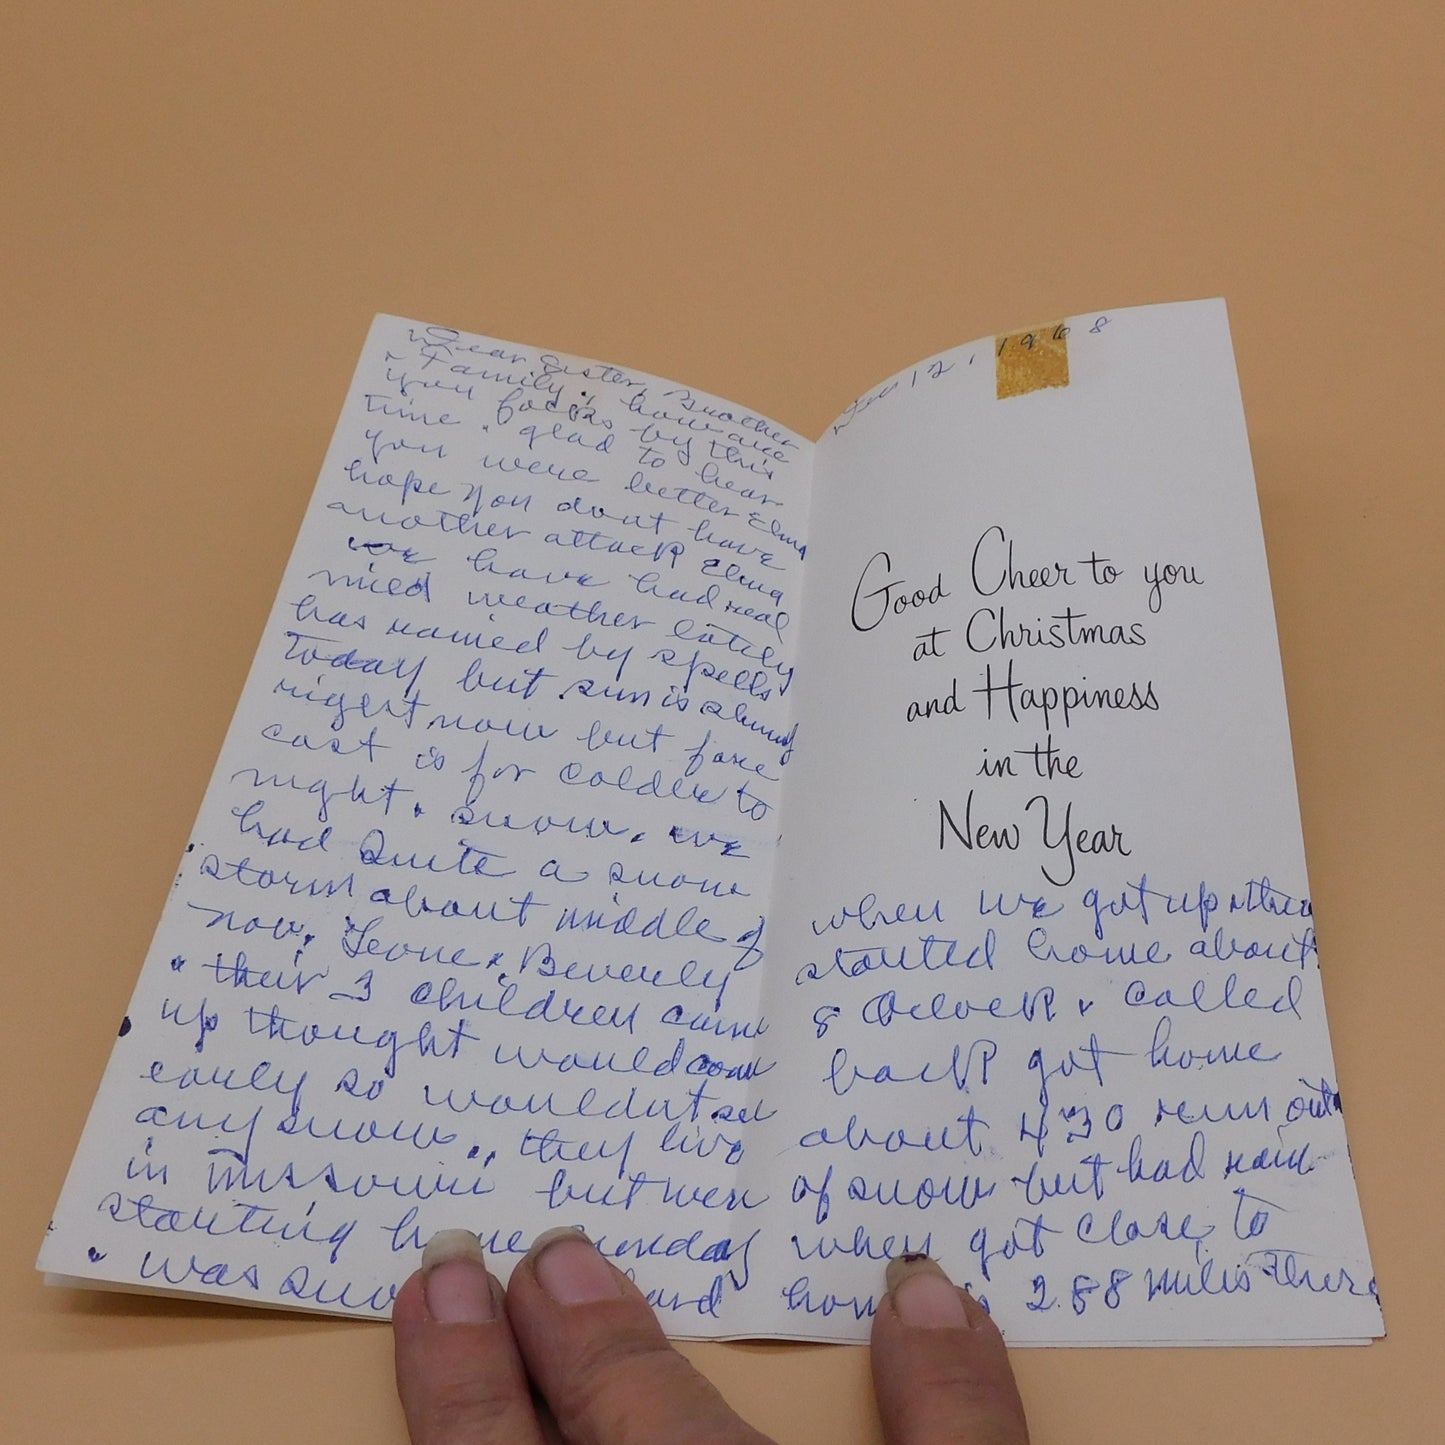 Dear Sister, Brother
& Family, how are
you folks by this
time. glad to hear
you were better Elma
hope you dont have
another attack Elma
we have had real
mied weather lately
has rained by spells
today but sun is
rigert now but fore
cast is for colder to
night. snow. we
had quite a snow
storm about middle of
nov. Leone & Beverly
& their 3 children came
up thought would come
early so wouldnt
any snow., they live
in missouri but when
starting home Sunday
& was hard
Dec 12, 1968
Good Cheer to you
at Christmas
and Happiness
in the
New Year
when we got up
started home about
8 Oclock & called
back got home
about 430 run out
of snow but had rain
when got close to
home is 288 miles there